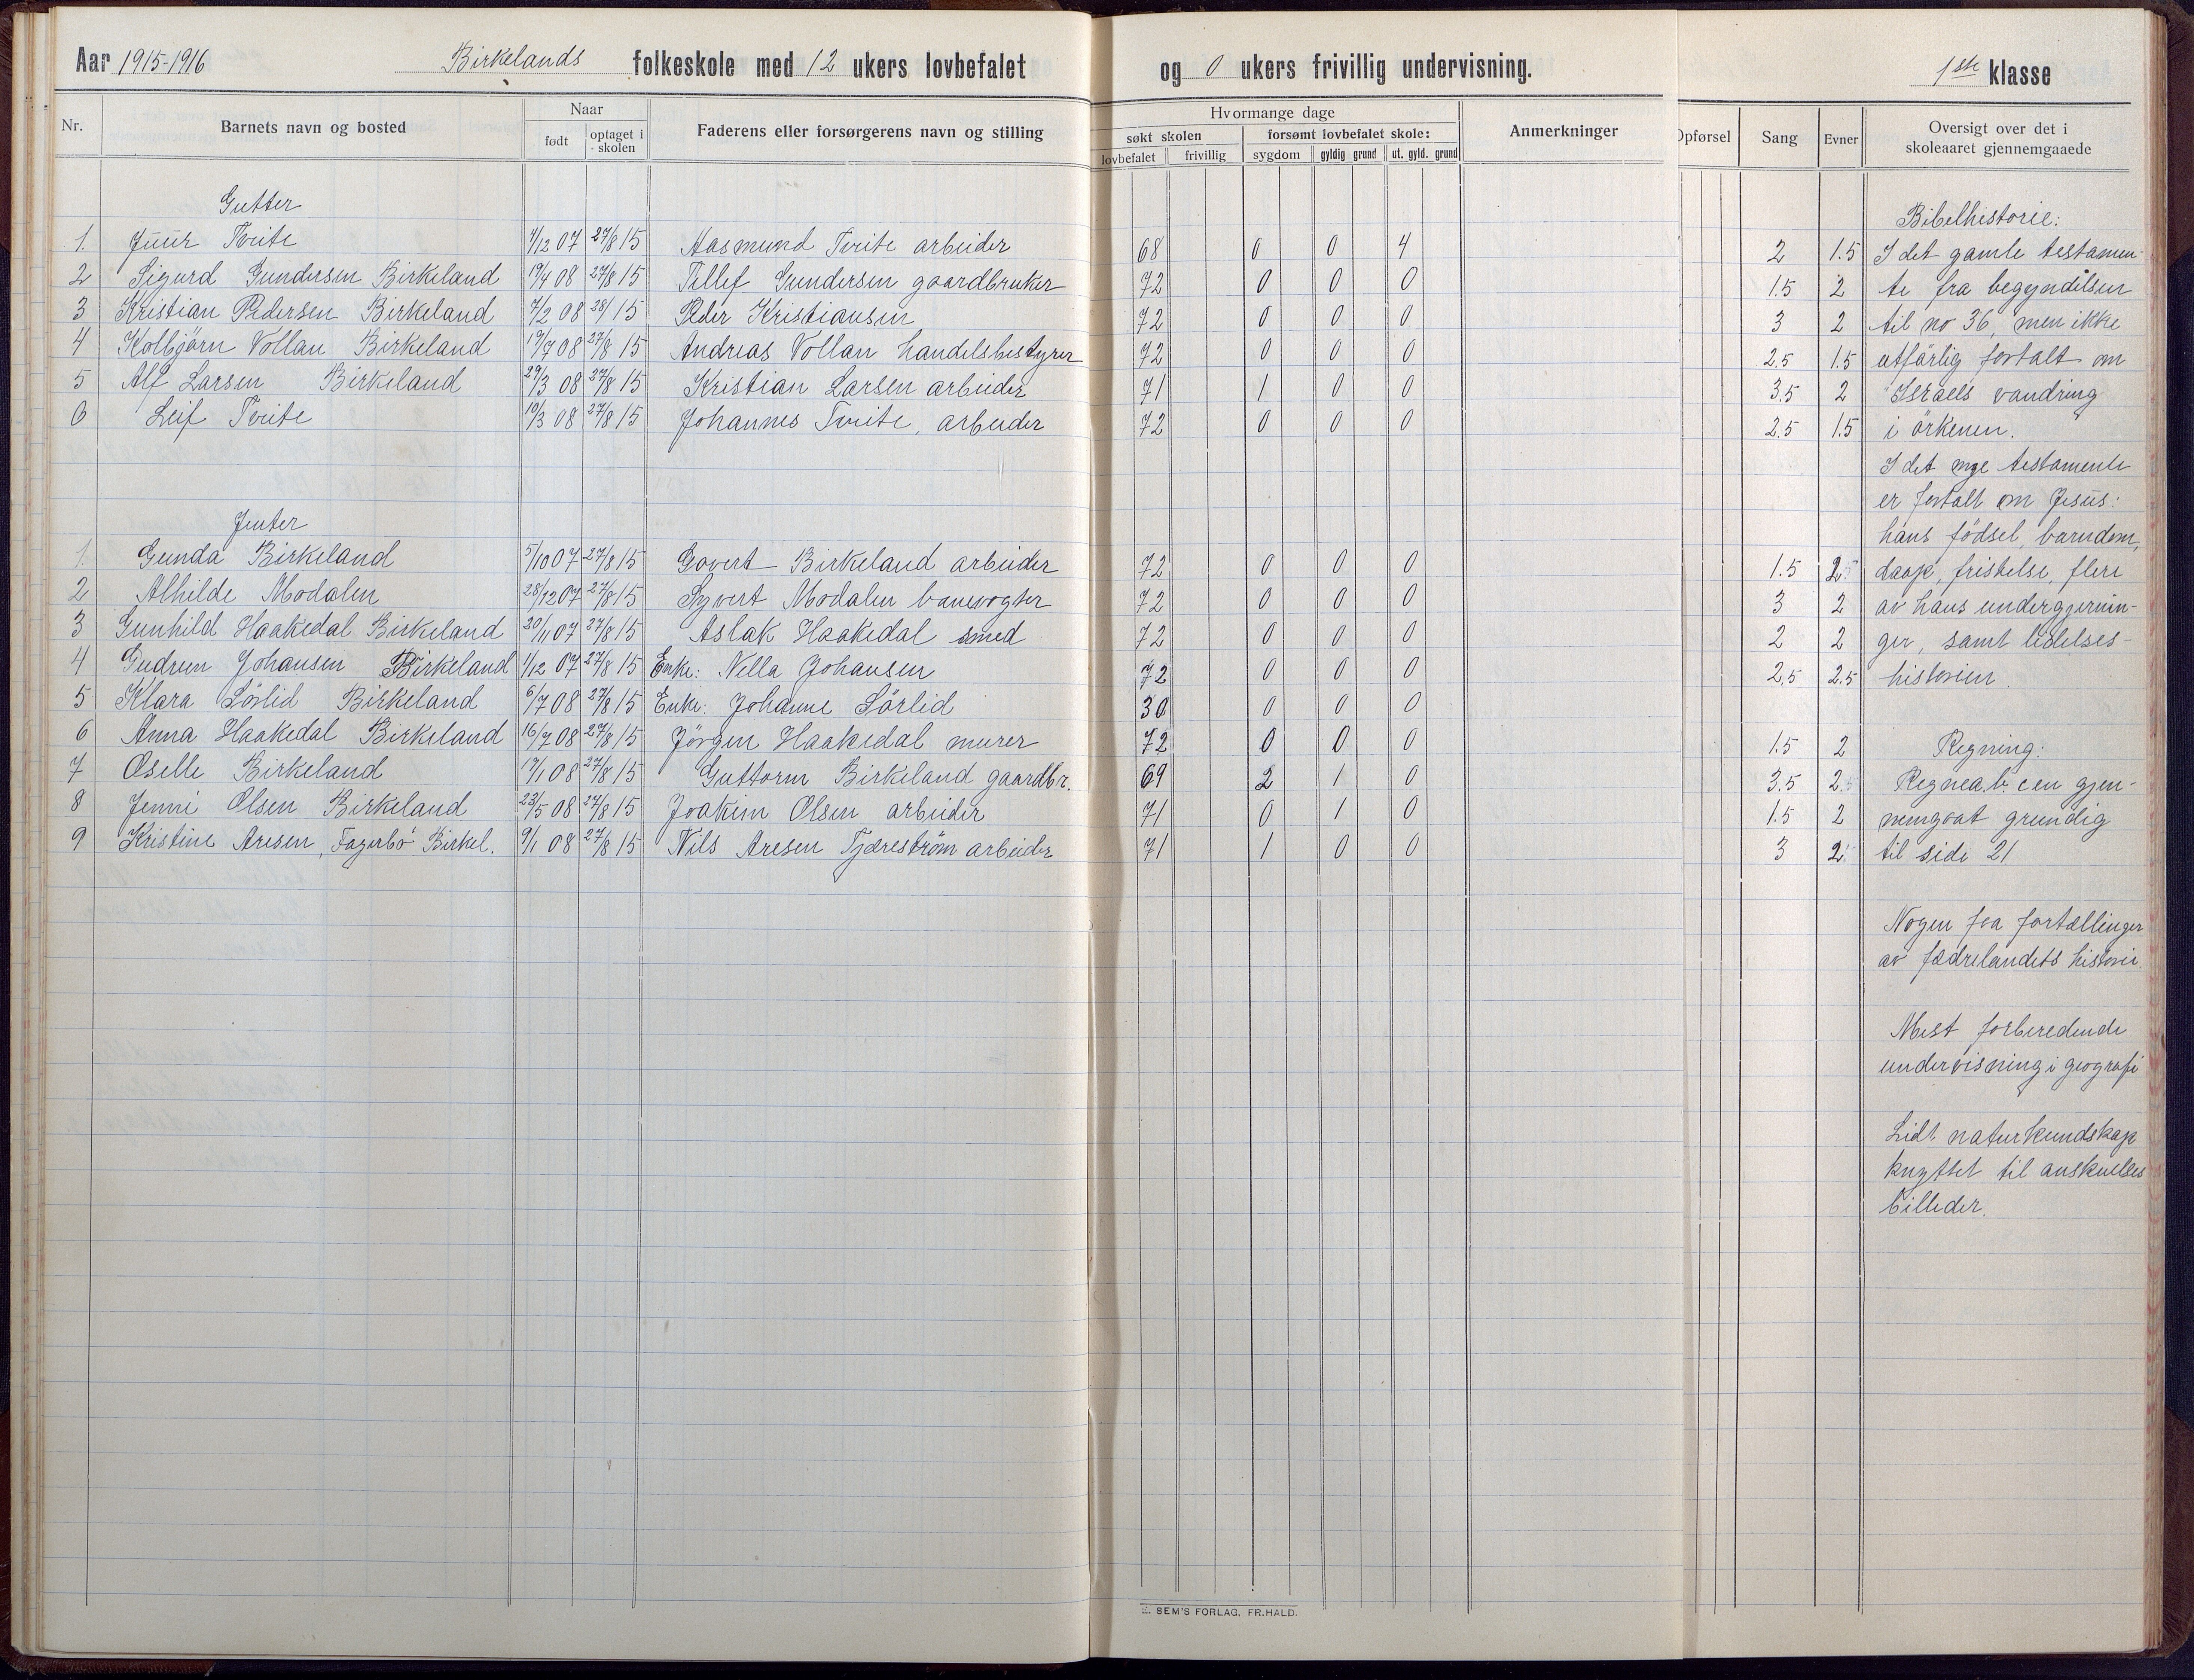 Aar 1915-1916 Birkelands folkeskole med 12 ukers lovbefalet og 0 ukers frivillig undervisning. 1ste klasse
Nr. Barnets navn og bosted Naar født optaget i skolen Faderens eller forsørgerens navn og stilling Hvormange dage søkt skolen lovbefalet frivillig forsømt lovbefalet skole: sygdom gyldig grund ut. gyld. grund Anmerkninger Opførsel Sang Evner Oversigt over det i skoleaaret gjennemgaaede
Gutter Bibelhistorie:
1. Juur Tveite 4/12 07 27/8 15 Aasmund Tveite arbeider 68 0 0 4 2 1.5 I det gamle testamen-
2 Sigurd Gundersen Birkeland 19/4 08 27/8 15 Tellef Gundersen gaardbruker 72 0 0 0 1.5 2 te fra begyndelsen
3 Kristian Pedersen Birkeland 7/2 08 28/ 15 Peder Kristiansen 72 0 0 0 3 2 til no 36, men ikke
4 Kolbjørn Vollan Birkeland 19/7 08 27/8 15 Andreas Vollan handelsbestyrer 72 0 0 0 2.5 1.5 utførlig fortalt om
5 Alf Larsen Birkeland 29/3 08 27/8 15 Kristian Larsen arbeider 71 1 0 0 3.5 2 Israels vandring
6 Leif Tveite 10/3 08 27/8 15 Johannes Tveite, arbeider 72 0 0 0 2.5 1.5 i ørkenen.
I det nye testamente
er fortalt om Jesus:
Jenter hans fødsel, barndom,
1. Gunda Birkeland 5/10 07 27/8 15 Govert Birkeland arbeider 72 0 0 0 1.5 2.5 daap, fristelse, flere
2 Alhilde Modalen 28/12 07 27/8 15 Syvert Modalen banevogter 72 0 0 0 3 2 av hans undergjernin-
3 Gunhild Haakedal Birkeland 20/11 07 27/8 15 Aslak Haakedal smed 72 0 0 0 2 2 ger, samt lidelses-
4 Gudrun Johansen Birkeland 1/12 07 27/8 15 Enke: Nella Johansen 72 0 0 0 2.5 2.5 historien.
5 Klara Sørlid Birkeland 6/7 08 27/8 15 Enke: Johanne Sørlid 30 0 0 0
6 Anna Haakedal Birkeland 16/7 08 27/8 15 Jørgen Haakedal murer 72 0 0 0 1.5 2 Regning:
7 Oselle Birkeland 17/1 08 27/8 15 Guttorm Birkeland gaardbr. 69 2 1 0 3.5 2.5 Regnea.b.c en gjen-
8 Jenni Olsen Birkeland 23/5 08 27/8 15 Joakim Olsen arbeider 71 0 1 0 1.5 2 nemgaat grundig
9 Kristine Aresen, Fagerbø Birkel. 9/1 08 27/8 15 Nils Aresen Tjærestrøm arbeider 71 1 0 0 3 2 til side 21
Nogen faa fortællinger
av fædrelandets historie.
Mest forberedende
undervisning i geografi
Lidt naturkundskap
knyttet til anskuelses
billeder.
E. SEM'S FORLAG, FR.HALD.